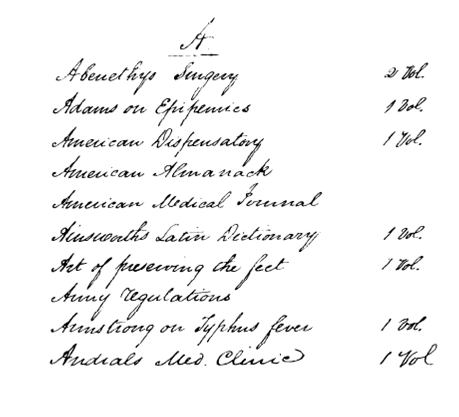 A
Abenethys Surgery 2 Vol.
Adams on Epipemics 1 Vol.
American Dispensatory 1 Vol.
American Almanack
American Medical Journal
Ainsworths Latin Dictionary 1 Vol.
Art of preserving the feet 1 Vol.
Army regulations
Armstrong on Typhus fever 1 Vol.
Andrals Med. Clinic 1 Vol